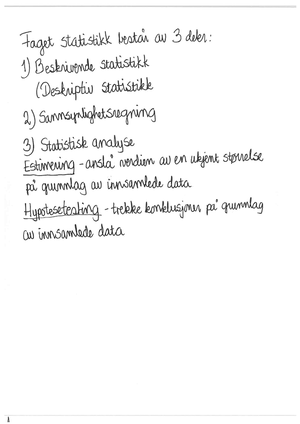 Faget statistikk består av 3 deler:
1) Beskrivende statistikk
(Deskriptiv statistikk
2) Sannsynlighetsregning
3) Statistisk analyse
Estimering - anslå verdien av en ukjent størrelse
på grunnlag av innsamlede data
Hypotesetesting - trekke konklusjoner på grunnlag
av innsamlede data
1